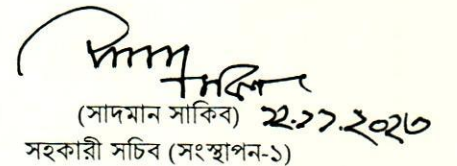 (সাদমান সাকিব) ২২.১১.২০২৩
সহকারী সচিব (সংস্থাপন-১)